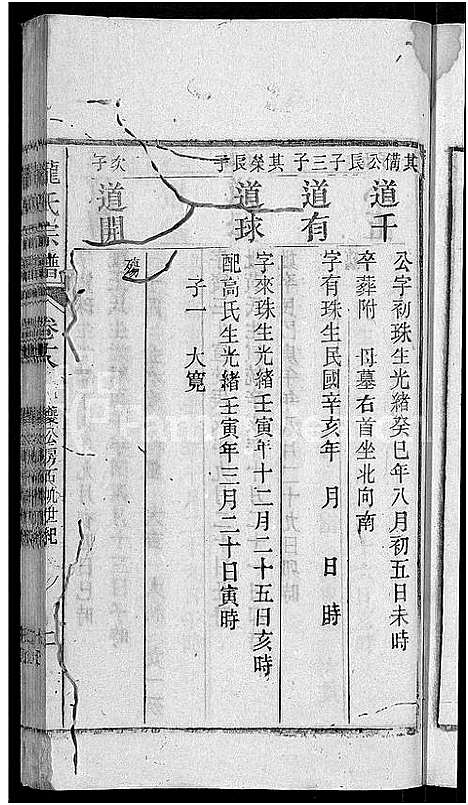 其備公長子
道千
公字初珠生光緒癸巳年八月初五日未時
卒葬附 母墓右首坐北向南
三子
道有
字有珠生民國辛亥年 月 日 時
其榮長子
道球
字來珠生光緒壬寅年十二月二十五日亥時
配高氏生光緒壬寅年三月二十日寅時
子一 大寬
次子
道開
殤
氏宗譜
卷